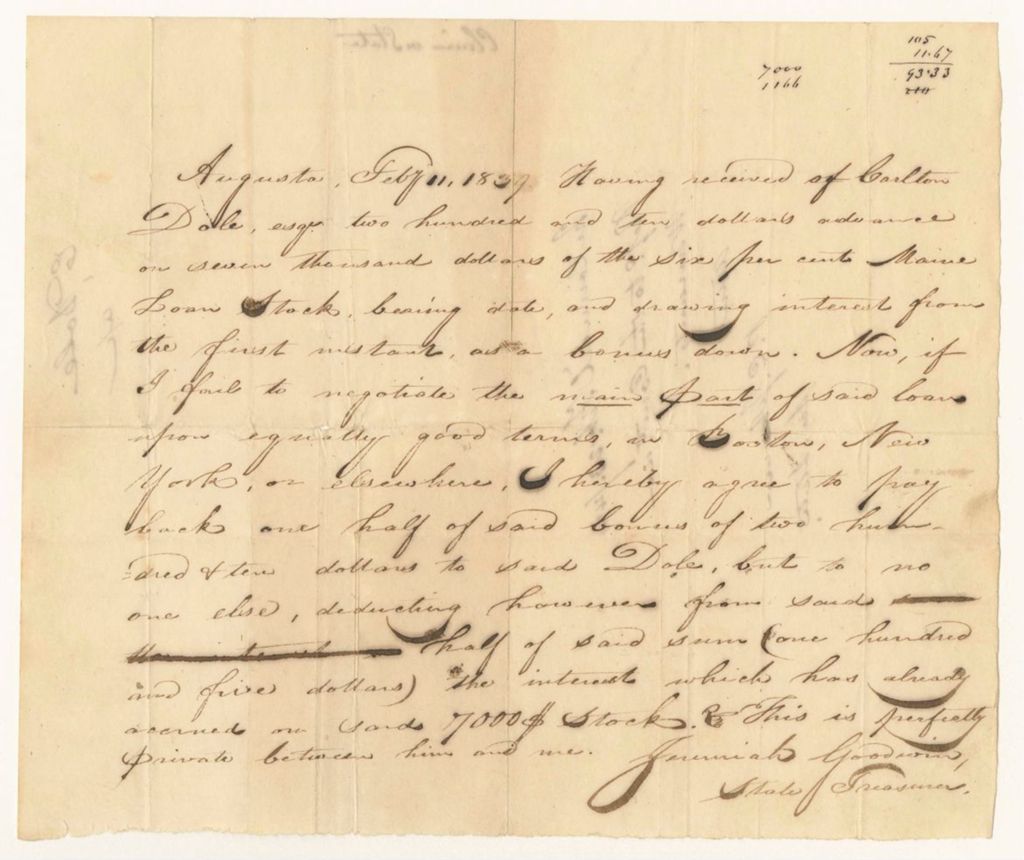 105
11.67
7000
93.33
1166
Augusta, Feby 11, 1839. Having received of Carlton
Dole, esqr two hundred and ten dollars advance
on seven thousand dollars of the six per cent Maine
Loan Stock, bearing date, and drawing interest from
the first instant, as a bonus down. Now, if
I fail to negotiate the main part of said loan
upon equally good terms, in Boston, New
York, or elsewhere, I hereby agree to pay
back one half of said bonus of two hun-
dred & ten dollars to said Dole, but to no
one else, deducting however from said
half of said sum (one hundred
and five dollars) the interest which has already
accrued on said 7000$ Stock. This is perfectly
private between him and me. Jeremiah Goodwin,
State Treasurer.